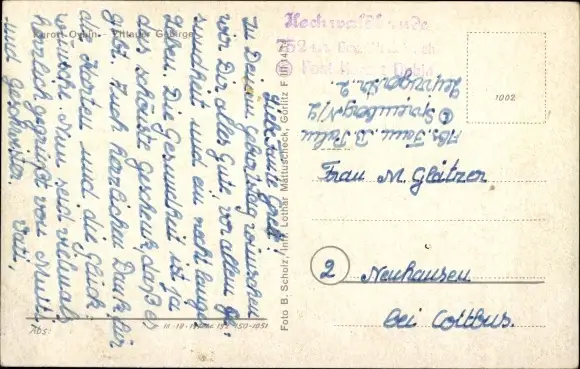 Kurort Oybin - Zittauer Gebirge
Liebe Tante Gretl!
Zu Deinem Geburtstag wünschen
wir Dir alles Gute, vor allem Ge-
sundheit und ein recht langes
Leben. Die Gesundheit ist ja
das schönste Geschenk, daß es
gibt. Auch herzlichen Dank für
die Karten und die Glück-
wünsche. Nun seid vielmals
herzlich gegrüßt von Mutti,
Vati,
und Geschwister.
Abs:
III-18-
Foto B. Scholz, Inh. Lothar Mattuscheck, Görlitz F III 1424
Hochwaldbaude
752 m
Post Kurort Oybin
Abs. Fam. B.
Spremberg N/L
1002
Frau M. Glätzer
2 Neuhausen
bei Cottbus.